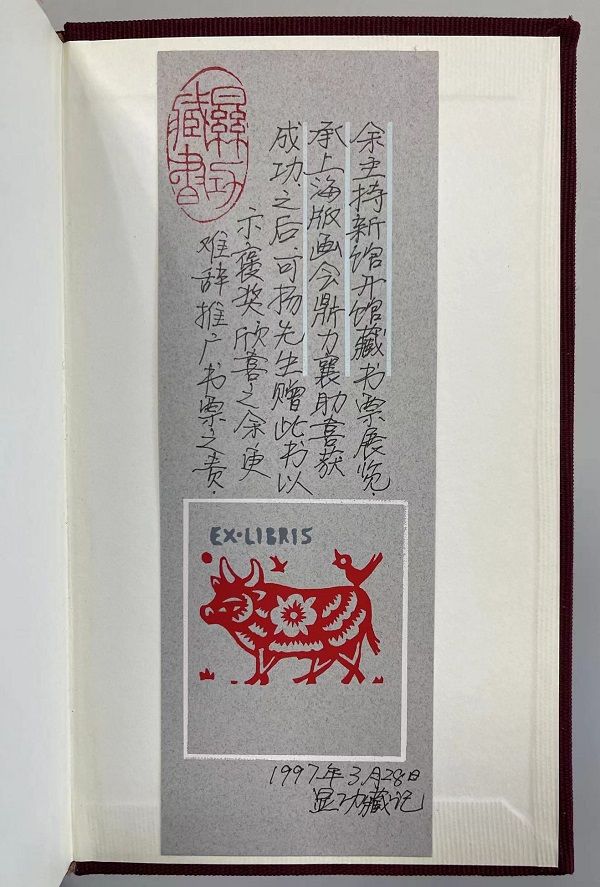 㬎功
藏書
余主持新馆开馆藏书票展览.
承上海版画会鼎力襄助喜获
成功.之后可扬先生赠此书以
示褒奖.欣喜之余更
难辞推广书票之责.
EX·LIBRIS
1997年3月28日
显功藏记